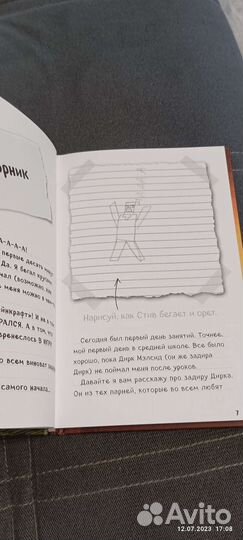 орник
А-А-А-А!
первые десять мину
Да. Я бегал кругам
чал (возможно, не
меня можно в тако
йнкрафт»! И как о
РАЛСЯ. А в том, что
еренеслось В ИГРУ
о всем виноват
самого начала...
А А А А А
Нарисуй, как Стив бегает и орет.
Сегодня был первый день занятий. Точнее,
мой первый день в средней школе. Все было
хорошо, пока Дирк Мэлсид (он же задира
Дирк) не поймал меня после уроков.
Давайте я вам расскажу про задиру Дирка.
Он из тех парней, которые во всем любят
7
Avito
12.07.2023 17:08